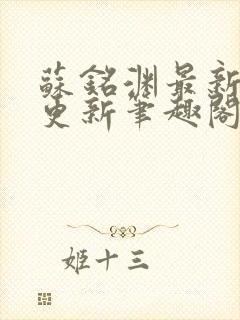 蘇銘淵最新
更新筆趣閣
姬十三